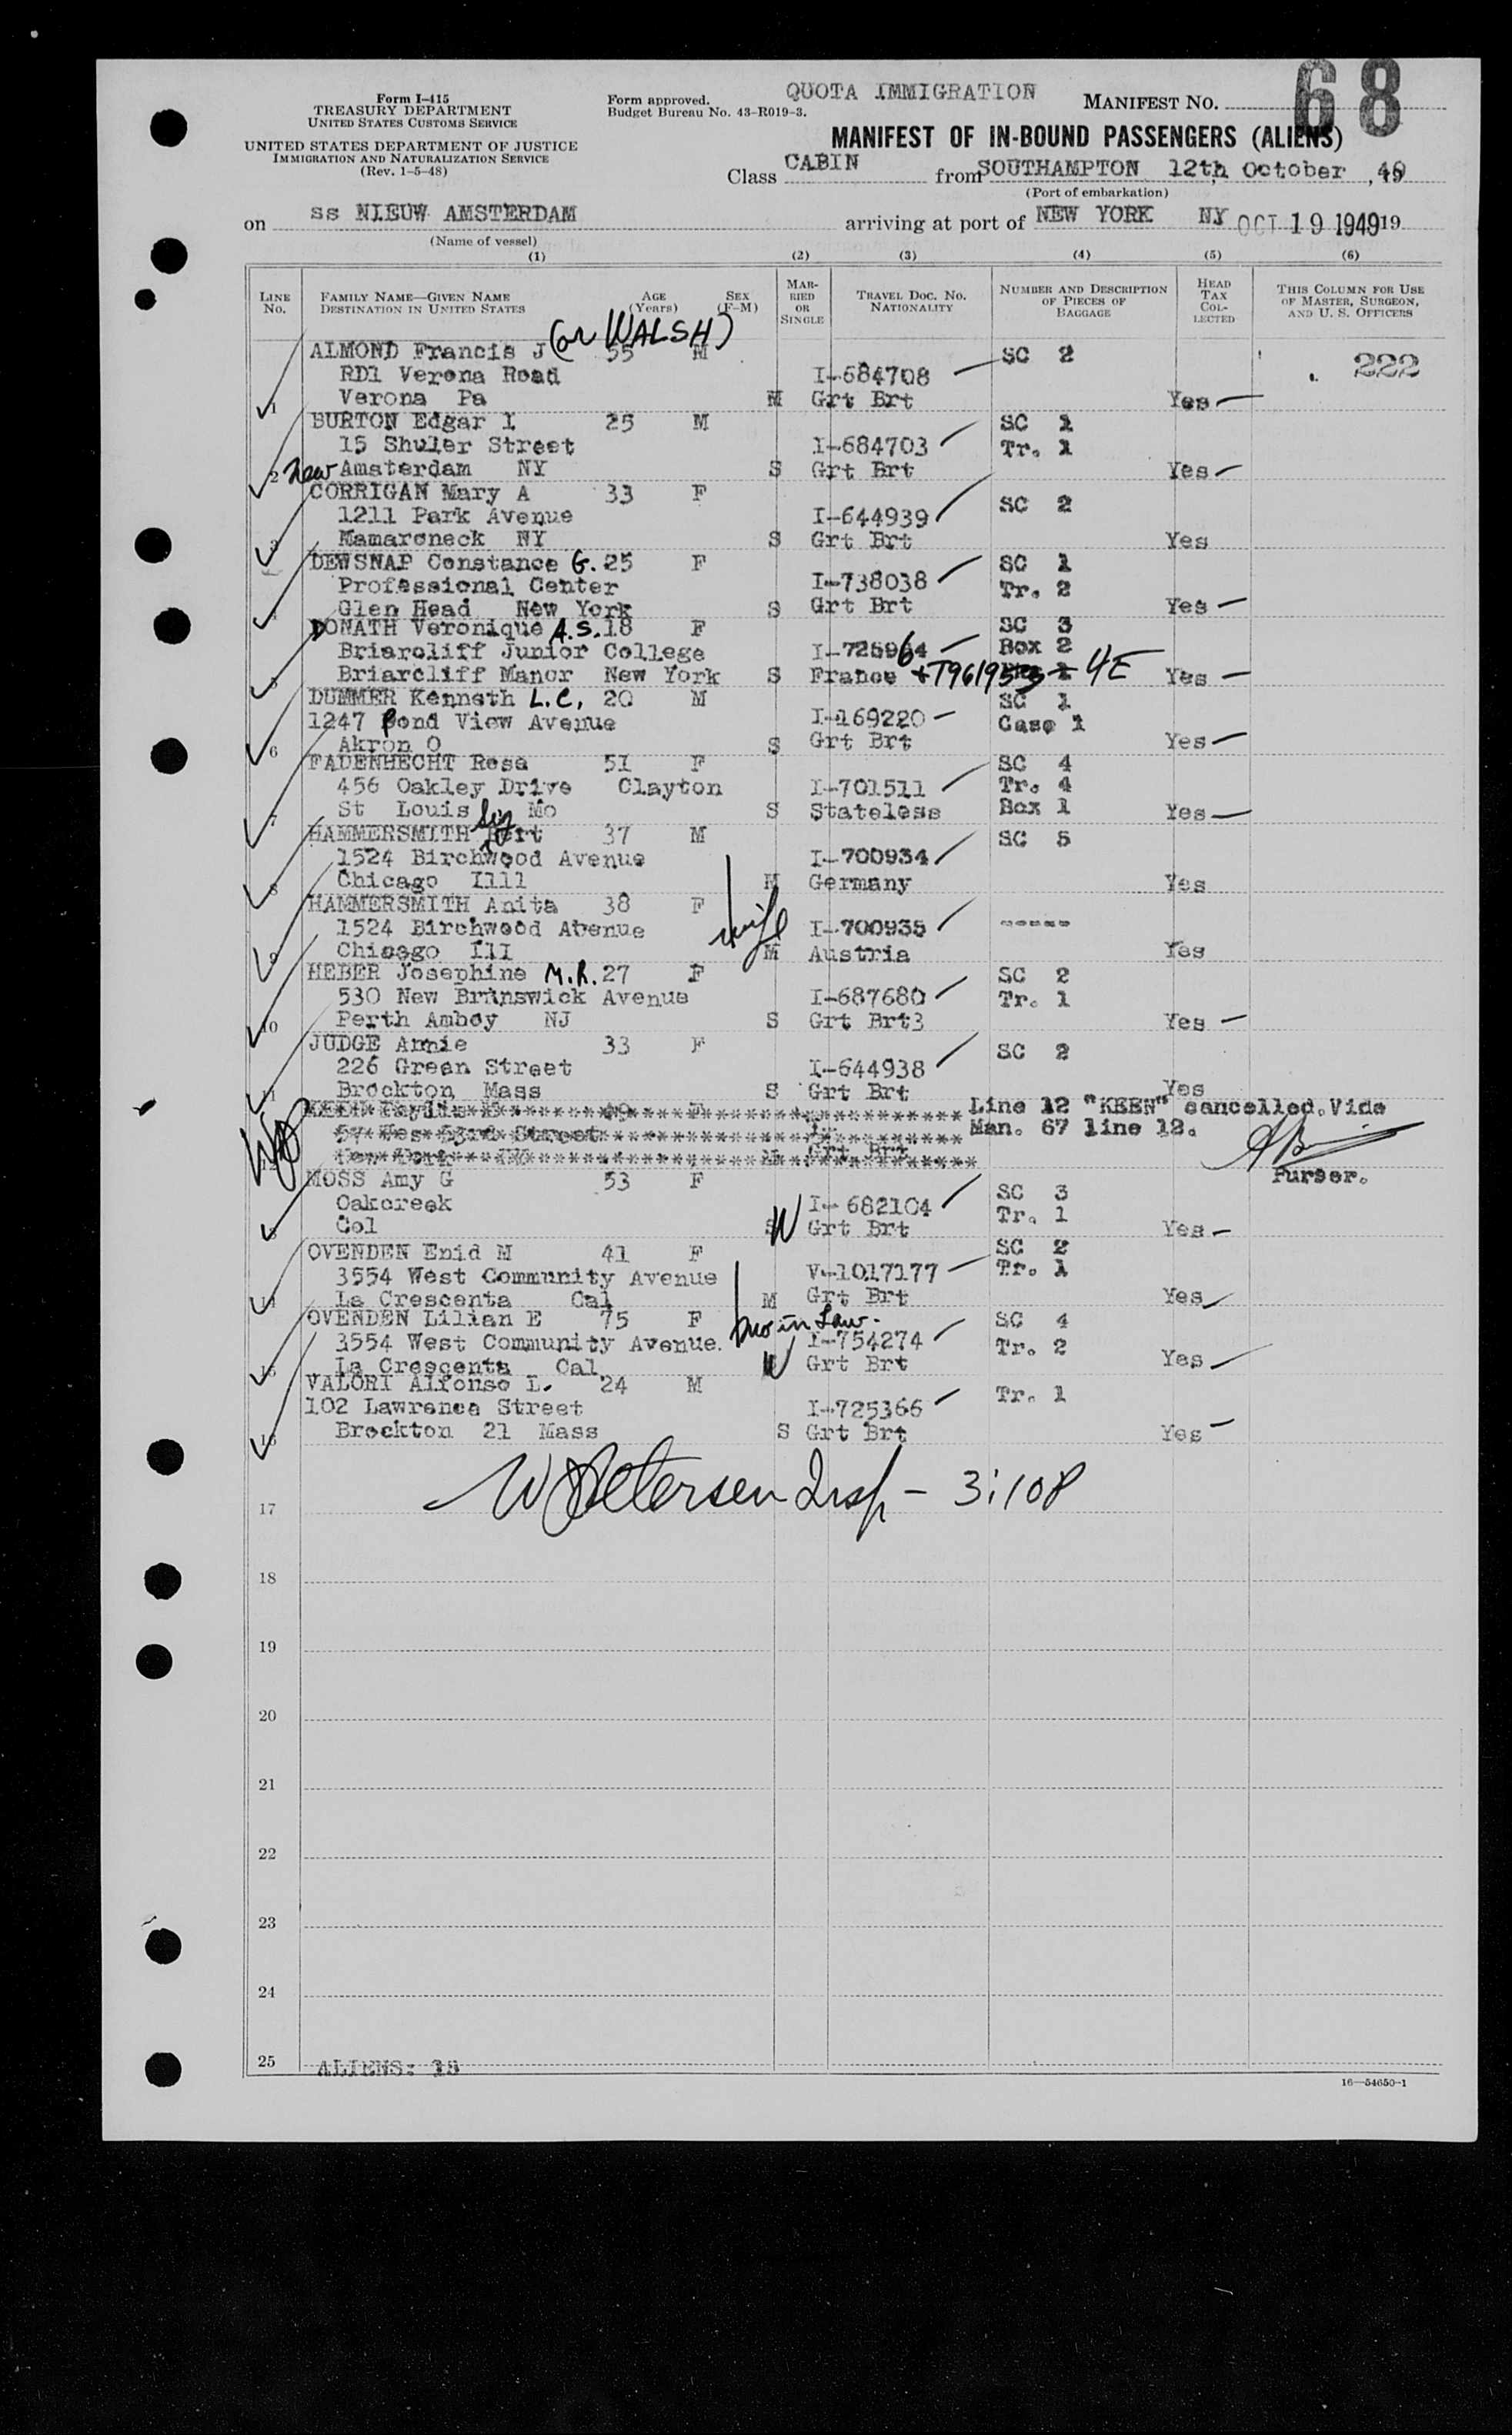 Form I-415
TREASURY DEPARTMENT
UNITED STATES CUSTOMS SERVICE
UNITED STATES DEPARTMENT OF JUSTICE
IMMIGRATION AND NATURALIZATION SERVICE
(Rev. 1-5-48)
Form approved.
Budget Bureau No. 43-R019-3.
QUOTA IMMIGRATION
MANIFEST No. 68
MANIFEST OF IN-BOUND PASSENGERS (ALIENS)
Class CABIN from SOUTHAMPTON 12th October, 49
(Port of embarkation)
on ss NIEUW AMSTERDAM arriving at port of NEW YORK NY OCT 19 1949 19
(Name of vessel)
(1) (2) (3) (4) (5) (6)
LINE No. FAMILY NAME—GIVEN NAME DESTINATION IN UNITED STATES AGE (Years) SEX (F-M) MARRIED OR SINGLE TRAVEL DOC. No. NATIONALITY NUMBER AND DESCRIPTION OF PIECES OF BAGGAGE HEAD TAX COLLECTED THIS COLUMN FOR USE OF MASTER, SURGEON, AND U. S. OFFICERS
(or WALSH)
ALMOND Francis J 55 M SC 2 222
RD1 Verona Road I-684708
1 Verona Pa M Grt Brt Yes
BURTON Edgar I 25 M SC 1
15 Shuler Street I-684703 Tr. 1
2 New Amsterdam NY S Grt Brt Yes
CORRIGAN Mary A 33 F SC 2
1211 Park Avenue I-644939
3 Mamaroneck NY S Grt Brt Yes
DEWSNAP Constance G. 25 F SC 1
Professional Center I-738038 Tr. 2
4 Glen Head New York S Grt Brt Yes
DONATH Veronique A.S. 18 F SC 3
Briarcliff Junior College I-725964 Box 2
5 Briarcliff Manor New York S France +T961953 4E Yes
DUMMER Kenneth L.C. 20 M SC 1
1247 Bond View Avenue I-169220 Case 1
6 Akron O S Grt Brt Yes
FADENHECHT Rosa 51 F SC 4
456 Oakley Drive Clayton I-701511 Tr. 4
7 St Louis Mo S Stateless Box 1 Yes
HAMMERSMITH 37 M SC 5
1524 Birchwood Avenue I-700934
8 Chicago Illl M Germany Yes
HAMMERSMITH Anita 38 F -----
1524 Birchwood Avenue wife I-700935
9 Chicago Ill M Austria Yes
HEBER Josephine M.R. 27 F SC 2
530 New Brunswick Avenue I-687680 Tr. 1
10 Perth Amboy NJ S Grt Brt3 Yes
JUDGE Annie 33 F SC 2
226 Green Street I-644938
11 Brockton Mass S Grt Brt Yes
Line 12 "KEEN" cancelled. Vide
Man. 67 line 12.
Grt Brt
Purser.
MOSS Amy G 53 F SC 3
Oakcreek I-682104 Tr. 1
13 Col W Grt Brt Yes
OVENDEN Enid M 41 F SC 2
3554 West Community Avenue V-1017177 Tr. 1
14 La Crescenta Cal M Grt Brt Yes
OVENDEN Lilian E 75 F in Law. SC 4
3554 West Community Avenue. I-754274 Tr. 2
15 La Crescenta Cal W Grt Brt Yes
VALORI Alfonso L. 24 M Tr. 1
102 Lawrence Street I-725366
16 Brockton 21 Mass S Grt Brt Yes
17 Petersen Insp - 3:10P
18
19
20
21
22
23
24
25 ALIENS: 15
16—54650-1